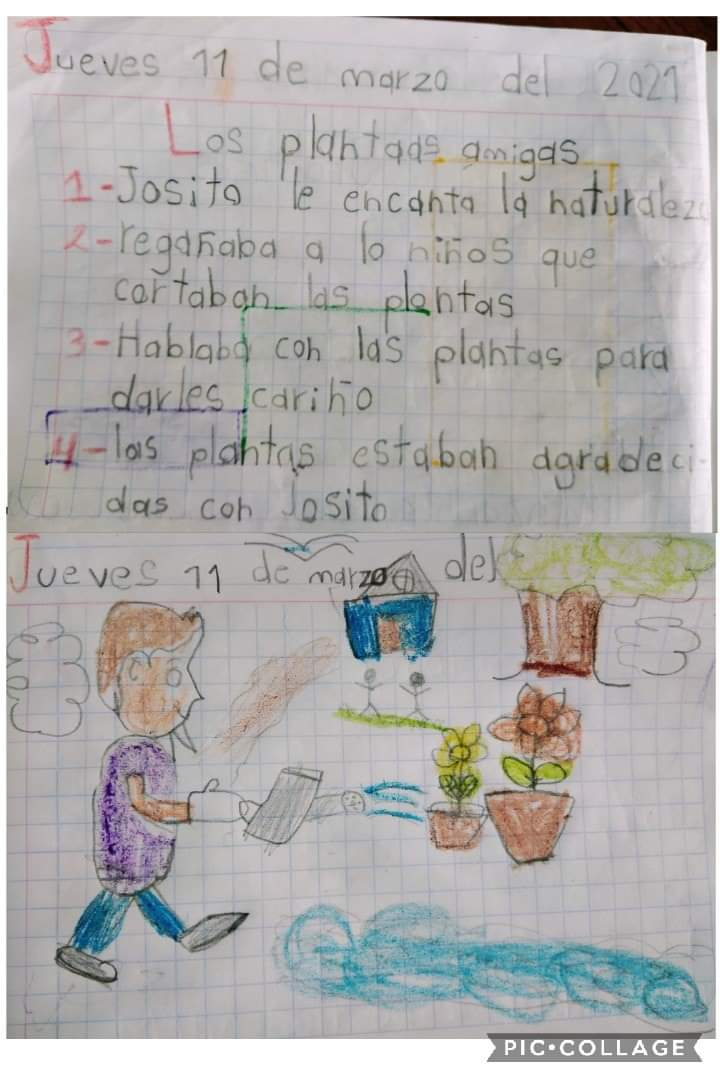 Jueves 11 de marzo del 2021
Los plantads amigas
1-Josito le encanta la naturaleza
2-regañaba a lo niños que
cortaban las plantas
3-Hablaba con las plantas para
darles cariño
4-las plantas estaban agradeci-
das con Josito
Jueves 11 de marzo del
PIC•COLLAGE